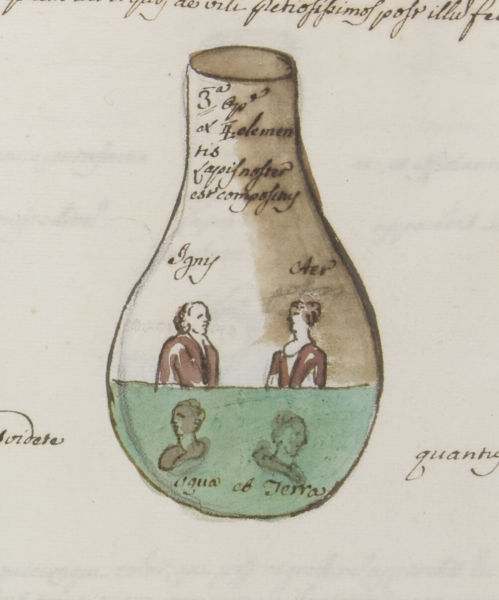 de vili pretiosissimos post illu
3ᵃ
ex 4 elemen
tis
Lapis noster
est compositus
Ignis
Aer
videte
quantus
aqua et Terra